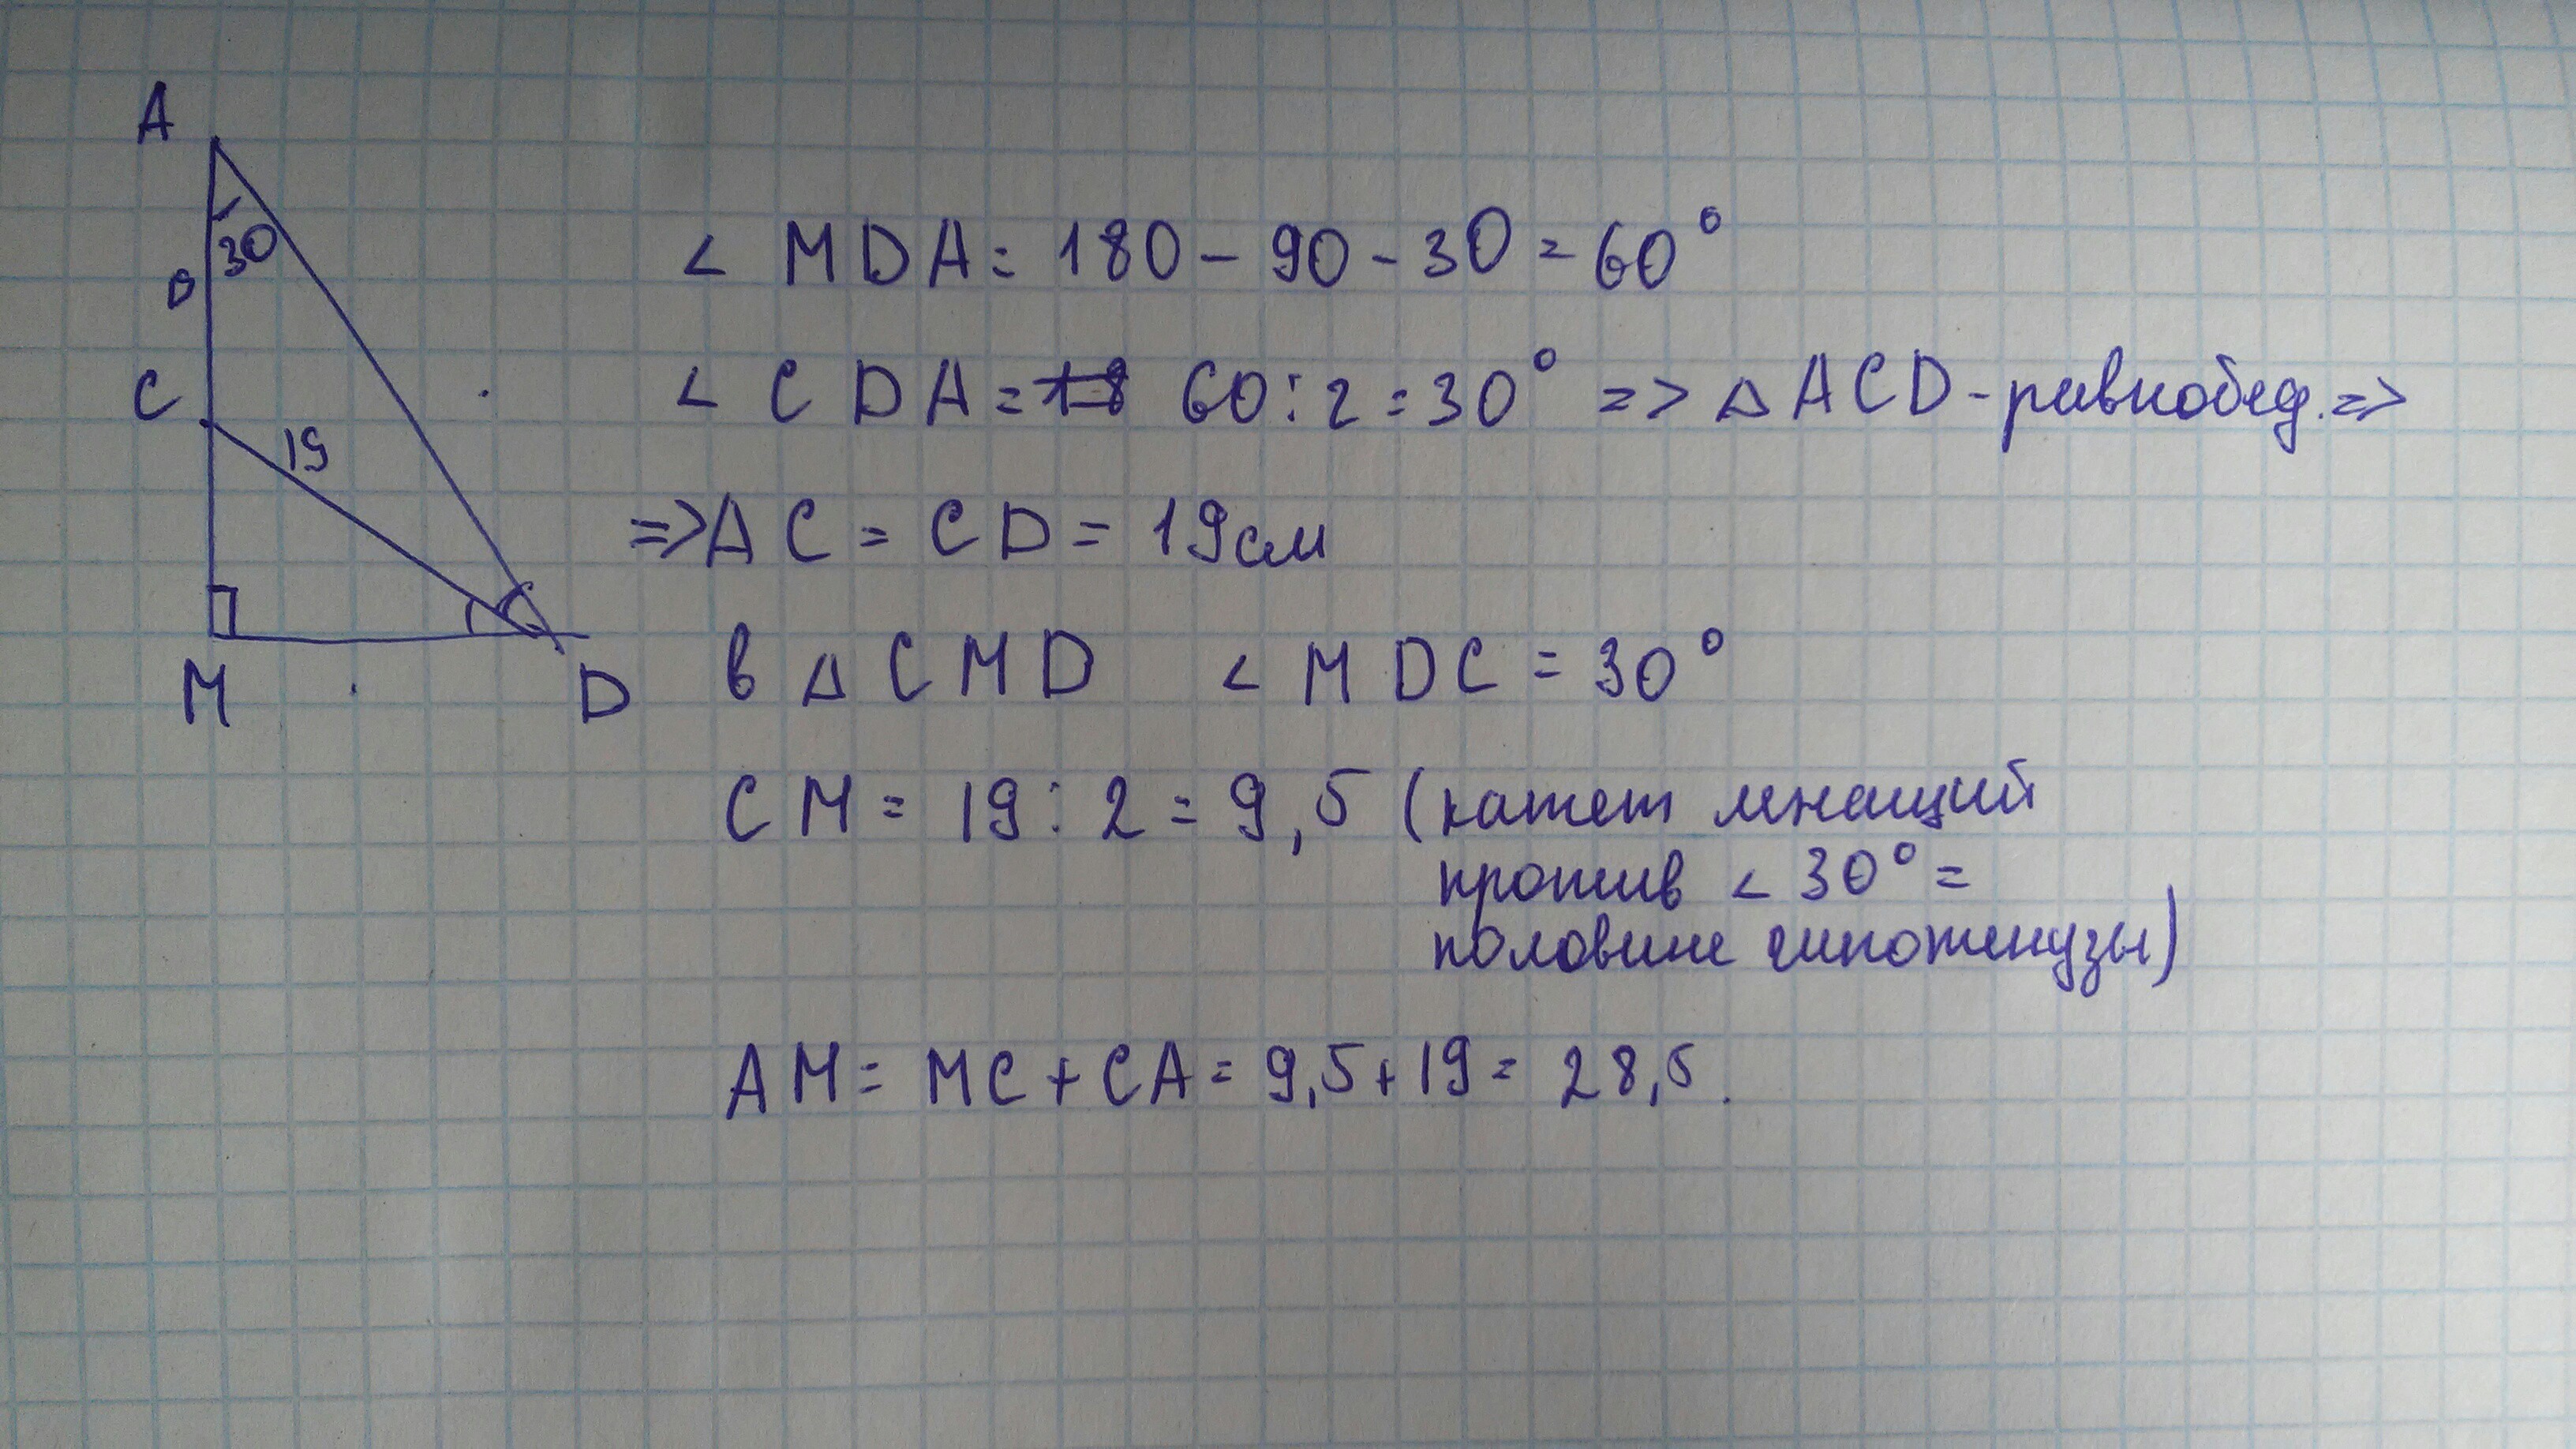 A
30
о
C
19
M
D
< MDA = 180 - 90 - 30 = 60°
< CDA = 18 60 : 2 = 30° => △ ACD - равнобед. =>
=> AC = CD = 19см
в △ CMD < MDC = 30°
CM = 19 : 2 = 9,5 (катет лежащий
против < 30° =
половине гипотенузы)
AM = MC + CA = 9,5 + 19 = 28,5.